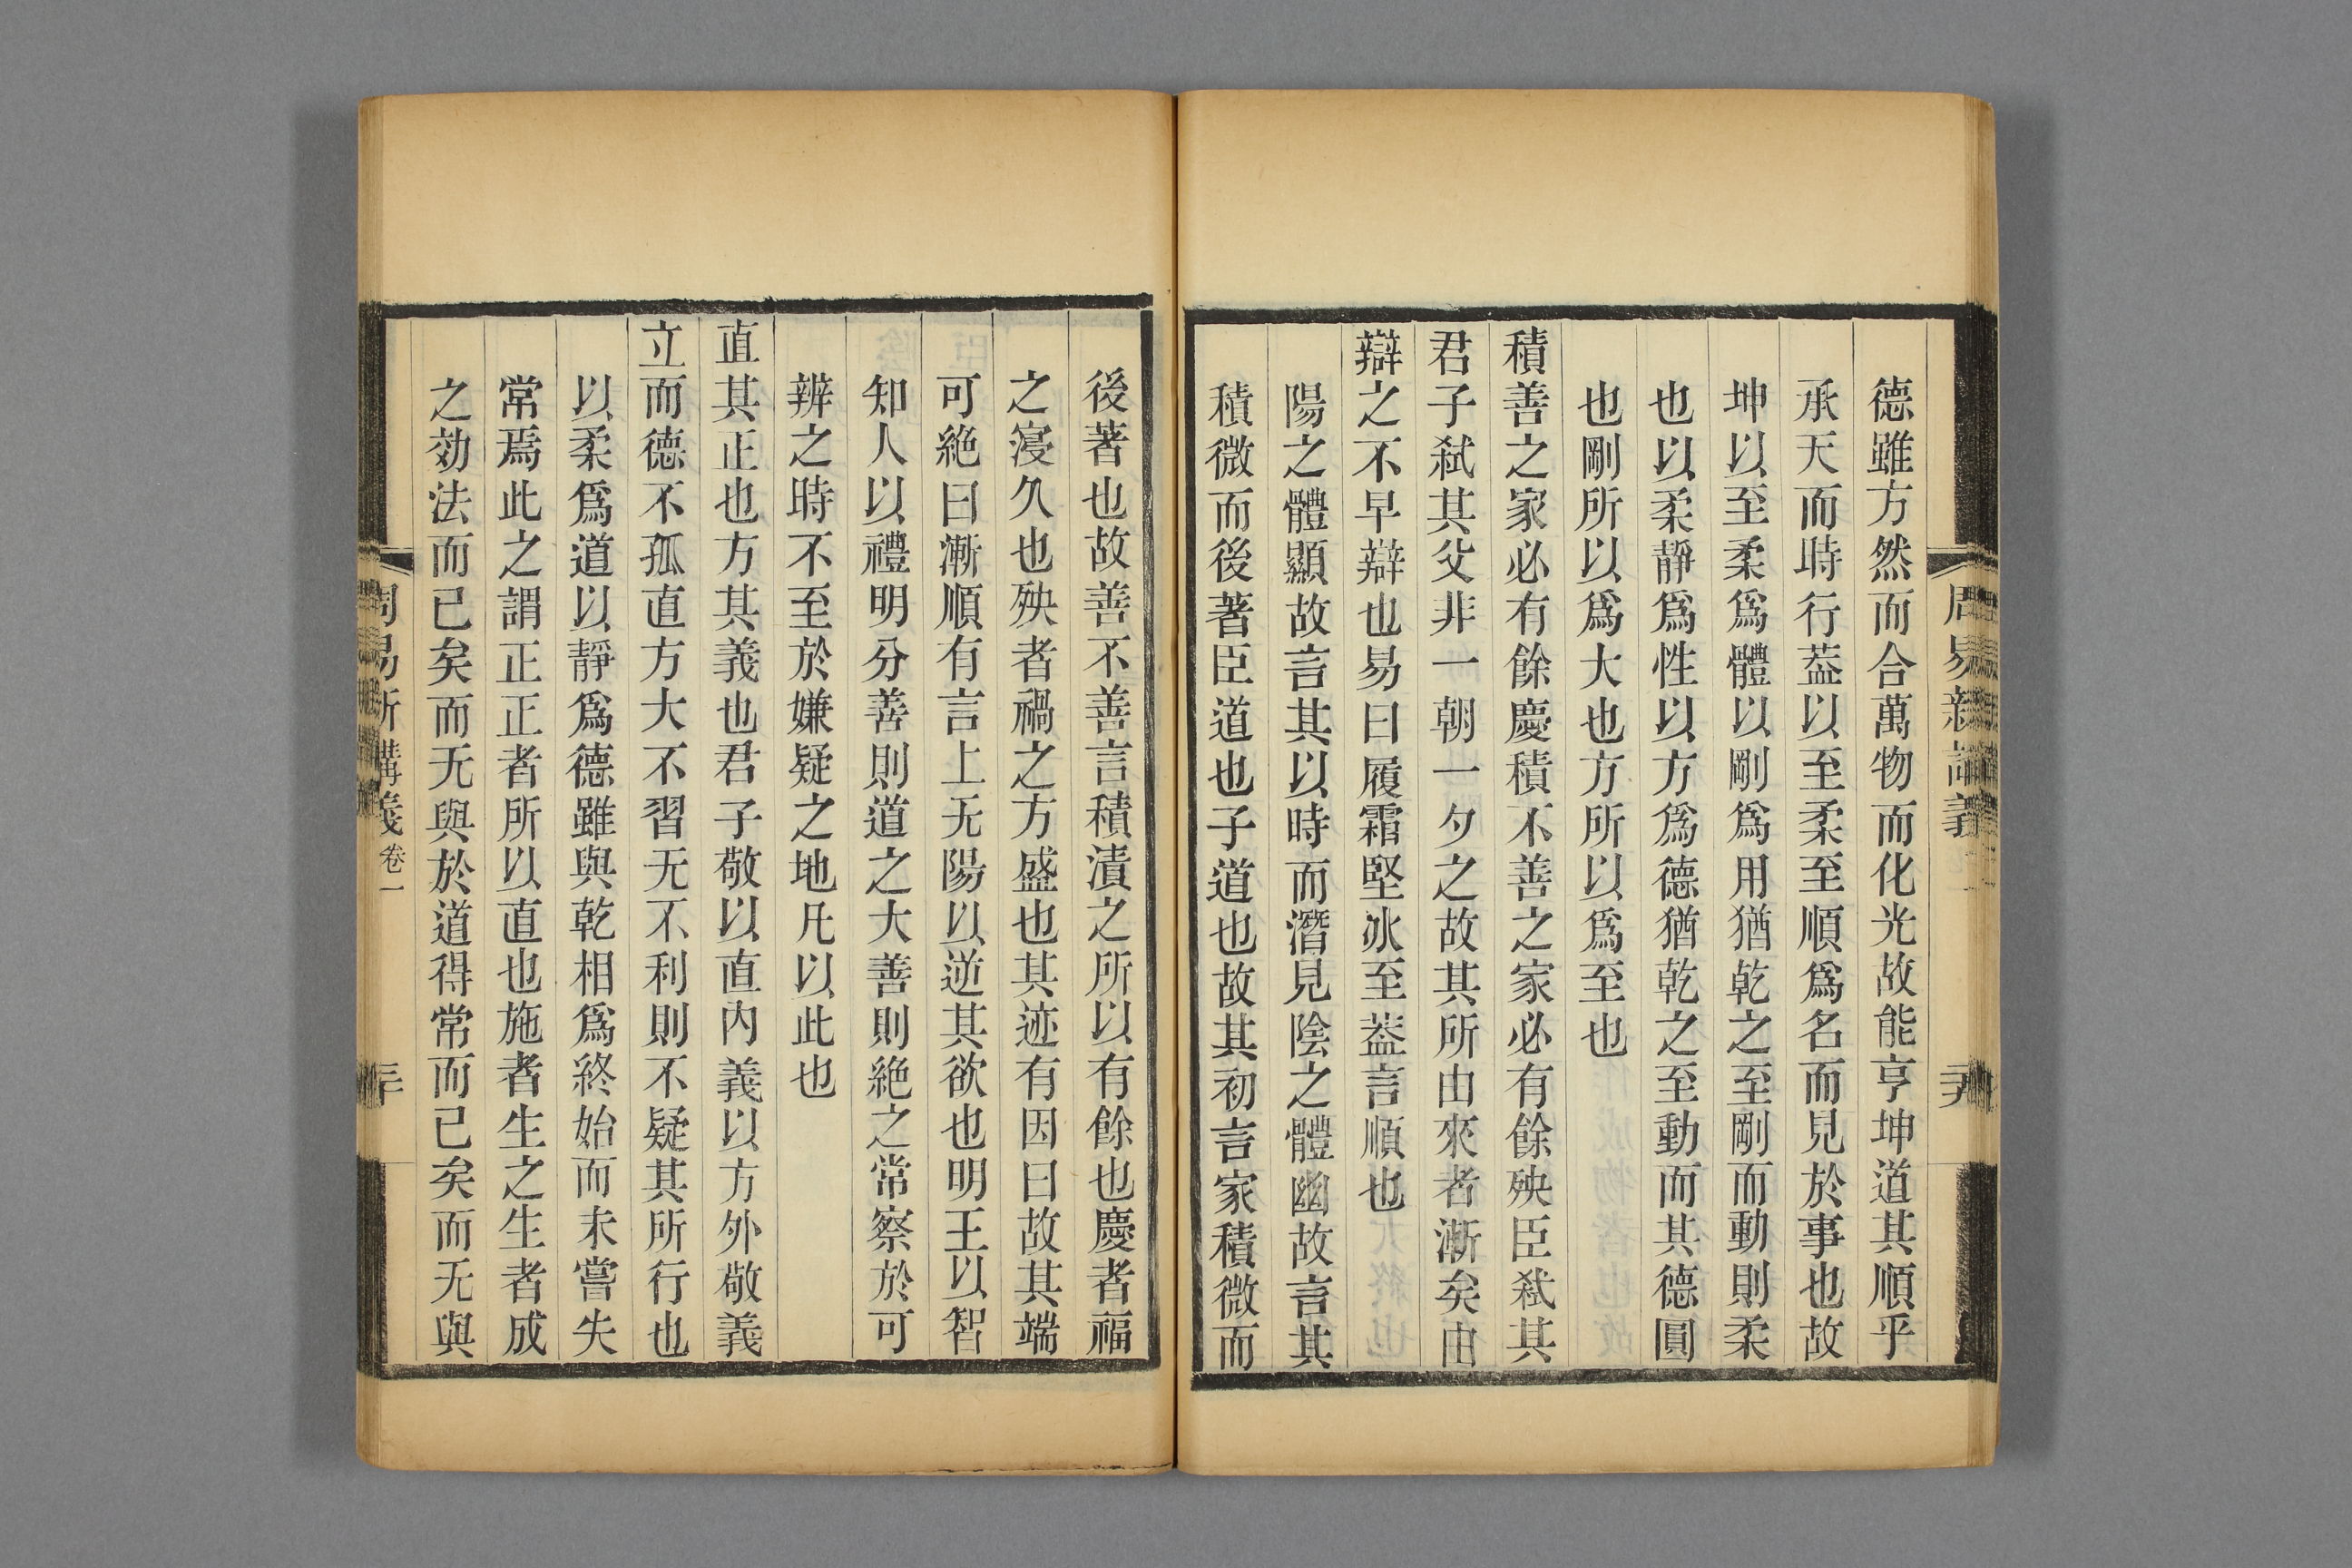 德雖方然而合萬物而化光故能亨坤道其順乎
承天而時行葢以至柔至順爲名而見於事也故
坤以至柔爲體以剛爲用猶乾之至剛而動則柔
也以柔靜爲性以方爲德猶乾之至動而其德圓
也剛所以爲大也方所以爲至也
積善之家必有餘慶積不善之家必有餘殃臣弒其
君子弒其父非一朝一夕之故其所由來者漸矣由
辯之不早辯也易曰履霜堅冰至葢言順也
陽之體顯故言其以時而潛見陰之體幽故言其
積微而後著臣道也子道也故其初言家積微而
後著也故善不善言積漬之所以有餘也慶者福
之寖久也殃者禍之方盛也其迹有因曰故其端
可絶曰漸順有言上无陽以逆其欲也明王以智
知人以禮明分善則道之大善則絶之常察於可
辨之時不至於嫌疑之地凡以此也
直其正也方其義也君子敬以直內義以方外敬義
立而德不孤直方大不習无不利則不疑其所行也
以柔爲道以靜爲德雖與乾相爲終始而未嘗失
常焉此之謂正正者所以直也施者生之生者成
之効法而已矣而无與於道得常而已矣而无與
周易新講義 卷一